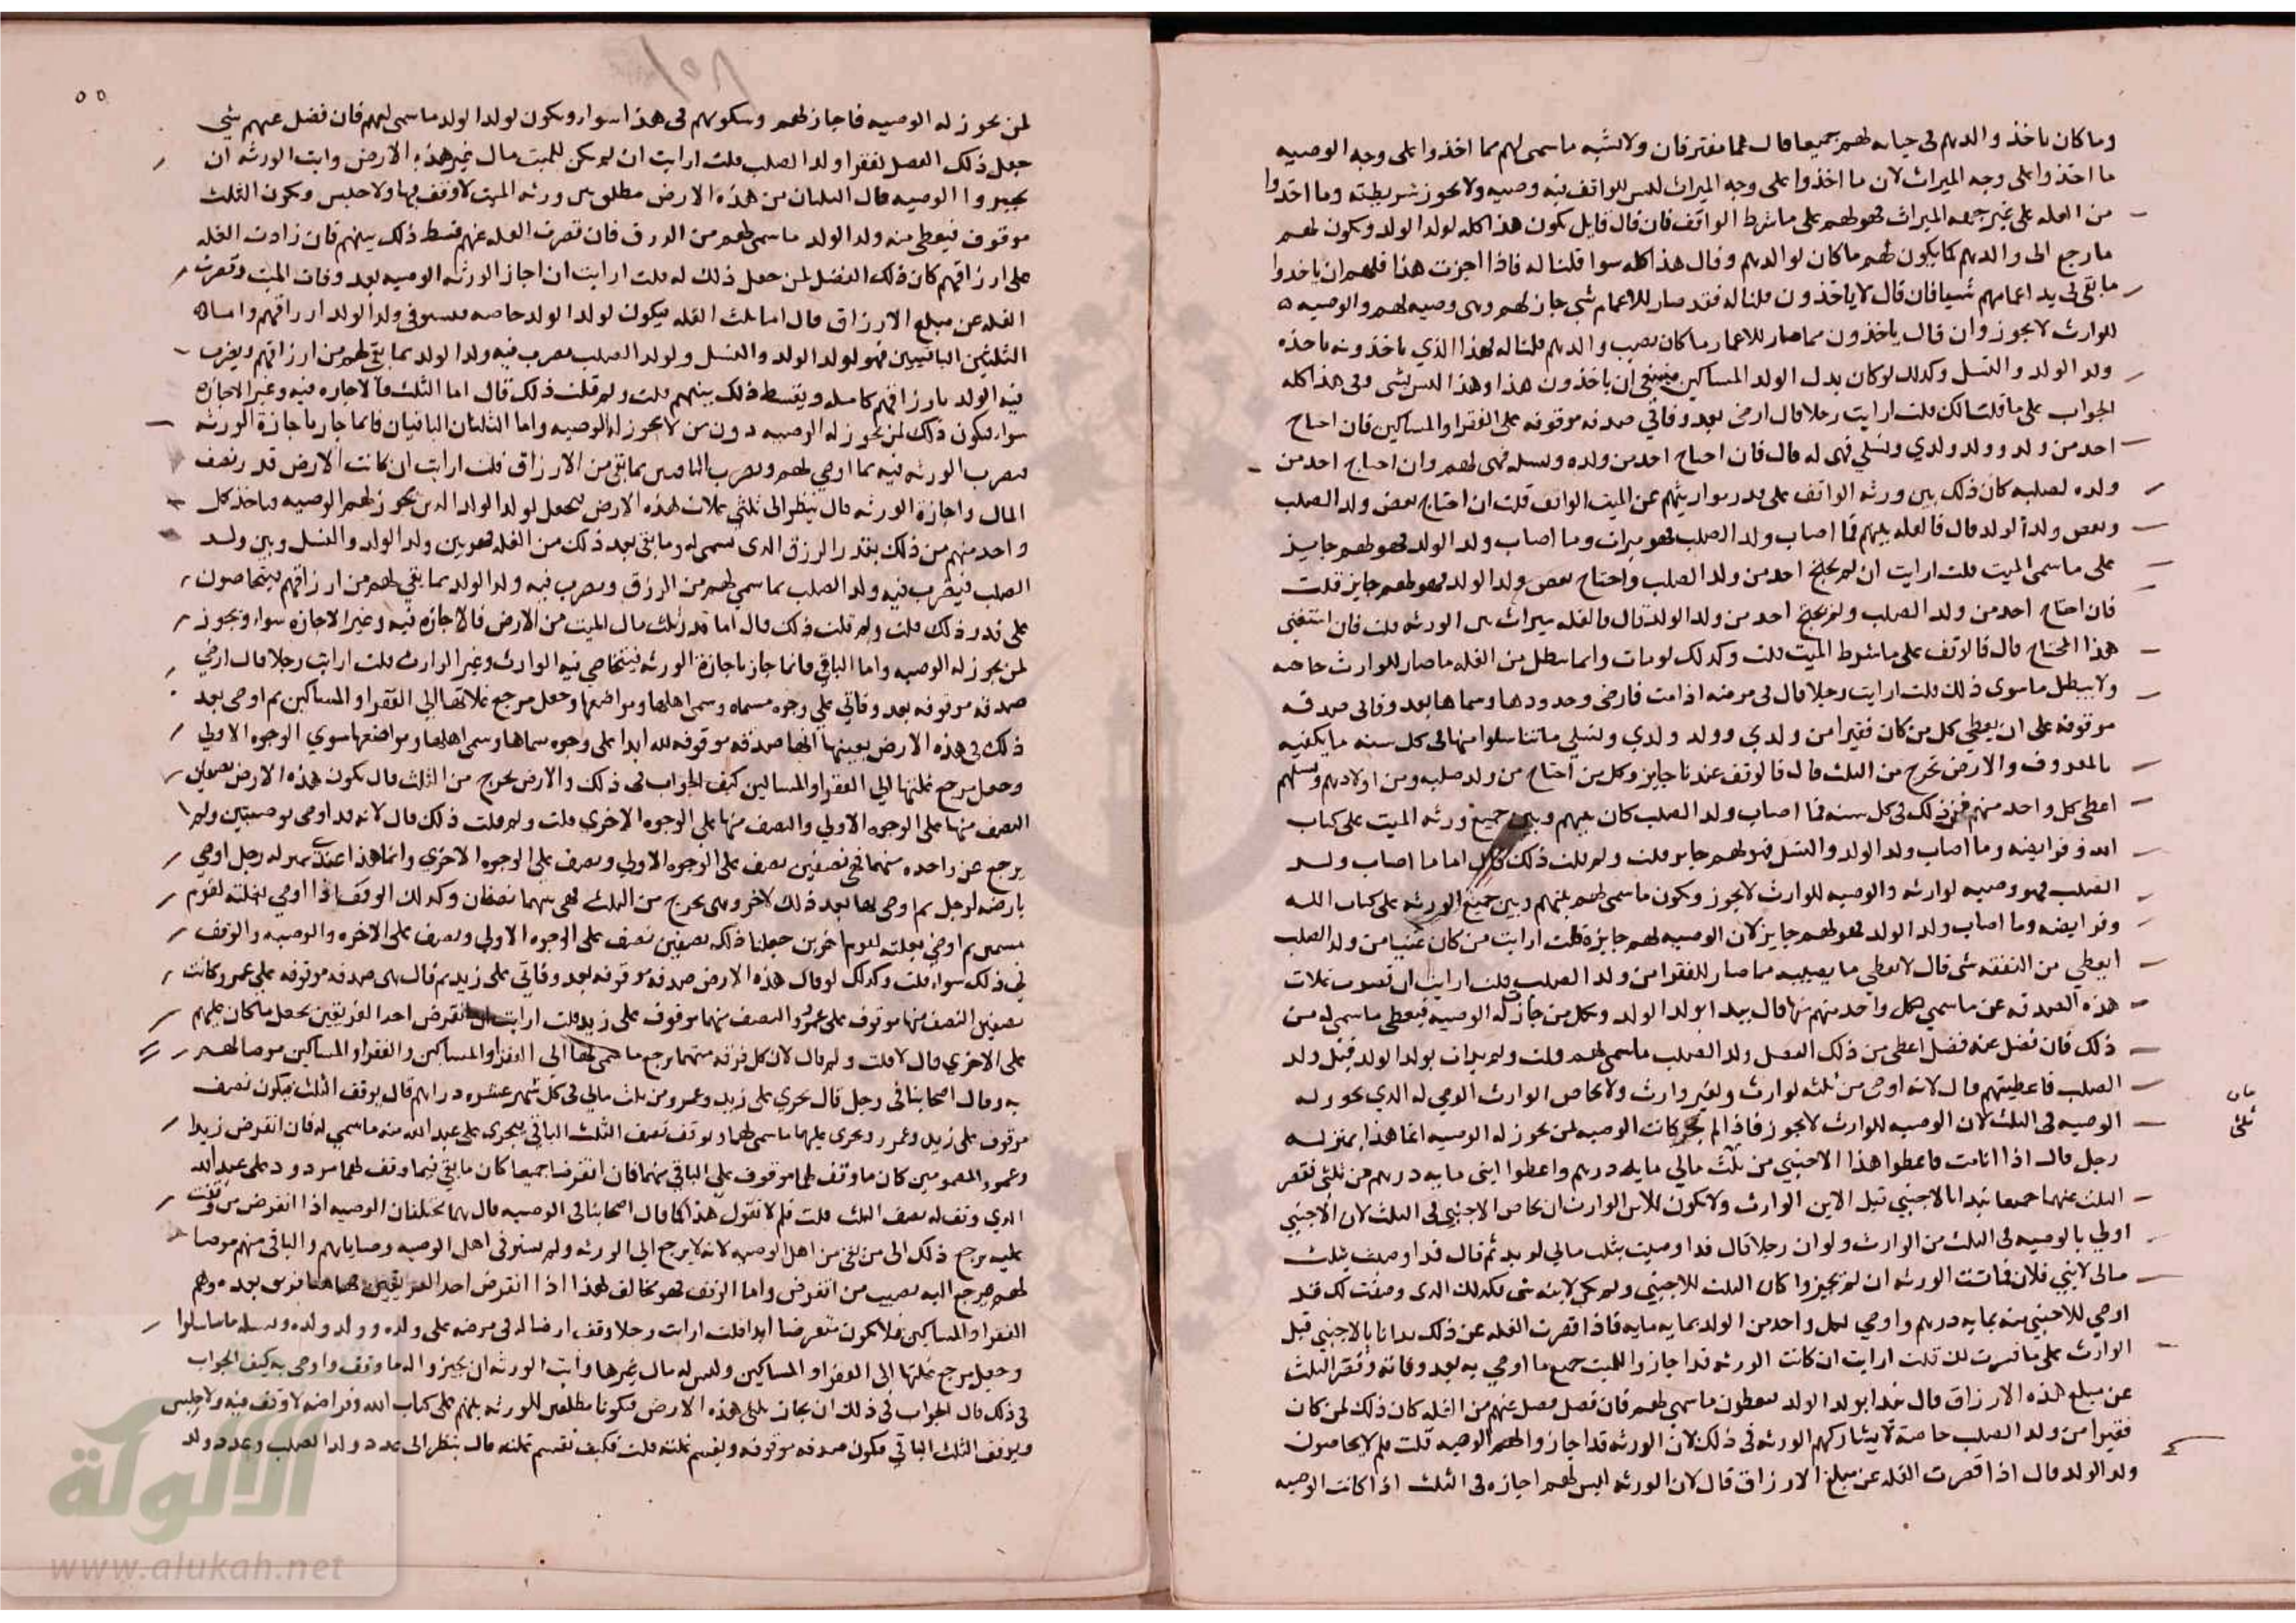 وما كان ياخذ والدهم في حياته لهم جميعا قال هما مفترقان ولا يشبه ما سمى لهم مما اخذوا على وجه الوصيه
ما اخذوا على وجه الميراث لان ما اخذوا على وجه الميراث ليس للواقف فيه وصيه ولا يجوز شريطته وما اخذوا
من الغله على غير جهه الميراث فهو لهم على ما شرط الواقف فان قال قايل يكون هذا كله لولد الولد ويكون لهم
ما رجع الى والدهم كما يكون لهم ما كان لوالدهم وقال هذا كله سوا قلنا له فاذا اجزت هذا فلهم ان ياخذوا
ما بقي في يد اعمامهم شيا فان قال لا ياخذون قلنا له فقد صار للاعمام شي جاز لهم وهى وصيه لهم والوصيه
للوارث لا يجوز وان قال ياخذون مما صار للاعمام ما كان نصيب والدهم قلنا له فهذا الذي ياخذونه ياخذه
ولد الولد والنسل وكذلك لو كان بدل الولد المساكين فينبغي ان ياخذون هذا وهذا ليس بشي وفي هذا كله
الجواب على ما قلت لك قلت ارايت رجلا قال ارضي بعد وفاتي صدقه موقوفه على الفقرا والمساكين فان احتاج
احد من ولدي وولد ولدي ونسلي فهى له قال فان احتاج احد من ولده ونسله فهى لهم وان احتاج احد من
ولده لصلبه كان ذلك بين ورثه الواقف على قدر مواريثهم عن الميت الواقف قلت ان احتاج بعض ولد الصلب
وبعض ولد الولد قال فالغله بينهم فما اصاب ولد الصلب فهو ميراث وما اصاب ولد الولد فهو لهم جايز
على ما سمى الميت قلت ارايت ان لم يحتج احد من ولد الصلب واحتاج بعض ولد الولد فهو لهم جايز قلت
فان احتاج احد من ولد الصلب ولم يحتج احد من ولد الولد قال فالغله ميراث بين الورثه قلت فان استغنى
هذا المحتاج قال فالوقف على ما شرط الميت قلت وكذلك لو مات وانما يبطل من الغله ما صار للوارث خاصه
ولا يبطل ما سوى ذلك قلت ارايت رجلا قال في مرضه اذا مت فارضي وحدودها وسماها بعد وفاتي صدقه
موقوفه على ان يعطي كل من كان فقيرا من ولدي وولد ولدي ونسلي ما تناسلوا منها في كل سنه ما يكفيه
بالمعروف والارض تخرج من الثلث قال فالوقف عندنا جايز وكل من احتاج من ولد صلبه ومن اولادهم ونسلهم
اعطى كل واحد منهم من ذلك في كل سنه فما اصاب ولد الصلب كان بينهم وبين جميع ورثه الميت على كتاب
الله وفرايضه وما اصاب ولد الولد والنسل فهو لهم جايز قلت ولم قلت ذلك قال اما ما اصاب ولد
الصلب فهو وصيه لوارثه والوصيه للوارث لا يجوز ويكون ما سمى لهم بينهم وبين جميع الورثه على كتاب الله
وفرايضه وما اصاب ولد الولد فهو لهم جايز لان الوصيه لهم جايزه قلت ارايت من كان غنيا من ولد الصلب
ايعطي من النفقه شى قال لا يعطى ما يصيبه مما صار للفقرا من ولد الصلب قلت ارايت ان قصرت غلات
هذه الصدقه عن ما سمي لكل واحد منهم منها قال يبدا بولد الولد وبكل من جاز له الوصيه فيعطى ما سمى له من
ذلك فان فضل عنه فضل اعطى من ذلك الفضل ولد الصلب ما سمى لهم قلت ولم بدات بولد الولد قبل ولد
الصلب فاعطيتهم قال لانه اوصى من ثلثه لوارث ولغير وارث ولا يحاص الوارث الموصي له الذي يجوز له
الوصيه في الثلث لان الوصيه للوارث لا يجوز فاذا لم يجز كانت الوصيه لمن يجوز له الوصيه انما هذا بمنزله
رجل قال اذا انا مت فاعطوا هذا الاجنبي من ثلث مالي مايه درهم واعطوا ابني مايه درهم من ثلثي فقصر
الثلث عنهما جميعا نبدا بالاجنبي قبل الابن الوارث ولا يكون للابن الوارث ان يحاص الاجنبي في الثلث لان الاجنبي
اولى بالوصيه في الثلث من الوارث ولو ان رجلا قال قد اوصيت بثلث مالي لزيد ثم قال قد اوصيت بثلث
مالى لابني فلان فابت الورثه ان يجيزوا كان الثلث للاجنبي ولم يكن لابنه شى فكذلك الذى وصفت لك قبل
اوصي للاجنبي منه بمايه درهم واوصي لكل واحد من الولد بمايه مايه فاذا قصرت الغله عن ذلك بدانا بالاجنبي قبل
الوارث على ما فسرت لك قلت ارايت ان كانت الورثه قد اجازوا للميت جميع ما اوصي به بعد وفاته وقصر الثلث
عن مبلغ هذه الارزاق قال نبدا بولد الولد فيعطون ما سمي لهم فان فضل فضل عنهم من الثلث كان ذلك لمن كان
فقيرا من ولد الصلب خاصة لا يشاركهم الورثه في ذلك لان الورثه قد اجازوا لهم الوصيه قلت فلم لا يحاصون
ولد الولد قال اذا قصرت الغله عن مبلغ الارزاق قال لان الورثه ليس لهم اجازه في الثلث اذا كانت الوصيه
لمن يجوز له الوصيه فاجازتهم وسكوتهم في هذا سوا ويكون لولد الولد ما سمى لهم فان فضل عنهم شي
جعل ذلك الفضل لفقرا ولد الصلب قلت ارايت ان لم يكن للميت مال غير هذه الارض وابت الورثه ان
يجيزوا الوصيه قال الثلثان من هذه الارض مطلق بين ورثه الميت لا وقف فيها ولا حبس ويكون الثلث
موقوف فيعطى منه ولد الولد ما سمى لهم من الرزق فان قصرت الغله عنهم قسط ذلك بينهم فان زادت الغله
على ارزاقهم كان ذلك الفضل لمن جعل ذلك له قلت ارايت ان اجاز الورثه الوصيه بعد وفات الميت وقصرت
الغله عن مبلغ الارزاق قال اما ثلث الغله فيكون لولد الولد خاصه فيستوفى ولد الولد ارزاقهم واما
الثلثين الباقيين فهو لولد الولد والنسل ولولد الصلب يضرب فيه ولد الولد بما بقى لهم من ارزاقهم ويضرب
فيه الولد بارزاقهم كامله ويقسط ذلك بينهم قلت ولم قلت ذلك قال اما الثلث فالاجازه فيه وغير الاجازه
سوا فيكون ذلك لمن يجوز له الوصيه دون من لا يجوز له الوصيه واما الثلثان الباقيان فانما جاز باجازة الورثه
فيضرب الورثه فيه بما اوصي لهم ويضرب الباقين بما بقى من الارزاق قلت ارايت ان كانت الارض قدر نصف
المال واجازه الورثه قال ينظر الى ثلثي غلات هذه الارض فيجعل لولد الولد الذين يجوز لهم الوصيه فياخذ كل
واحد منهم من ذلك بقدر الرزق الذى سمى له وما بقى بعد ذلك من الغله فهو بين ولد الولد والنسل وبين ولد
الصلب فيضرب فيه ولد الصلب بما سمي لهم من الرزق ويضرب فيه ولد الولد بما بقي لهم من ارزاقهم يتحاصون
على قدر ذلك قلت ولم قلت ذلك قال اما قدر ثلث مال الميت من الارض فالاجازه فيه وغير الاجازه سوا ويجوز
لمن يجوز له الوصيه واما الباقي فانما جاز باجازة الورثه فيتحاص فيه الوارث وغير الوارث قلت ارايت رجلا قال ارضي
صدقه موقوفه بعد وفاتي على وجوه مسماه وسمى اهلها ومواضعها وجعل مرجع غلاتها الى الفقرا والمساكين ثم اوصى بعد
ذلك في هذه الارض بعينها انها صدقه موقوفه لله ابدا على وجوه سماها وسمى اهلها ومواضعها سوي الوجوه الاولي
وجعل مرجع غلتها الي الفقرا والمساكين كيف الجواب في ذلك والارض تخرج من الثلث قال يكون هذه الارض نصفين
النصف منها على الوجوه الاولي والنصف منها على الوجوه الاخري قلت ولم قلت ذلك قال لانه قد اوصى بوصيتين ولم
يرجع عن واحده منهما فهي نصفين نصف على الوجوه الاولي ونصف على الوجوه الاخري وانما هذا عندي بمنزله رجل اوصي
بارضه لرجل ثم اوصى بها بعد ذلك لاخر وهى تخرج من الثلث فهى بينهما نصفان وكذلك الوقف اذا اوصي بغلته لقوم
مسمين ثم اوصي بغلته لقوم اخرين جعلنا ذلك نصفين نصف على الوجوه الاولي ونصف على الاخره والوصيه والوقف
في ذلك سوا قلت وكذلك لو قال هذه الارض صدقه موقوفه بعد وفاتي على زيد ثم قال هى صدقه موقوفه على عمرو كانت
نصفين النصف منها موقوف على عمرو والنصف منها موقوف على زيد قلت ارايت ان انقرض احد الفريقين يجعل ما كان عليهم
على الاخري قال لا قلت ولم قال لان كل فرقه منهما يرجع ما سمى لها الى الفقرا والمساكين والفقرا والمساكين موصا لهم
به وقال اصحابنا في رجل قال يجري على زيد وعمرو من ثلث مالي في كل شهر عشره دراهم قال يوقف الثلث فيكون نصف
موقوف على زيد وعمرو ويجرى عليهما ما سمى لهما ويوقف نصف الثلث الباقي فيجرى على عبد الله منه ما سمي له فان انقرض زيدا
وعمرو المضمومين كان ما وقف لهما موقوف على الباقي منهما فان انقرضا جميعا كان ما بقى فيما وقف لهما مردود على عبد الله
الذي وقف له نصف الثلث قلت فلم لا تقول هذا كما قال اصحابنا في الوصيه قال هما مختلفان الوصيه اذا انقرض من وقفت
عليه يرجع ذلك الى من بقى من اهل الوصيه لانه لا يرجع الي الورثه ولم يستوفى اهل الوصيه وصاياهم والباقى منهم موصا
لهم فيرجع اليه نصيب من انقرض واما الوقف فهو مخالف لهذا اذا انقرض احد الفريقين فهاهنا قوم بعده وهم
الفقرا والمساكين فلا يكون منقرضا ابدا قلت ارايت رجلا وقف ارضا له في مرضه على ولده وولد ولده ونسله ما تناسلوا
وجعل مرجع غلتها الى الفقرا والمساكين وليس له مال غيرها وابت الورثه ان يجيزوا له ما وقف واوصى به كيف الجواب
في ذلك قال الجواب في ذلك ان يجاز ثلثي هذه الارض فيكونا مطلقين للورثه بينهم على كتاب الله وفرايضه لا وقف فيه ولا حبس
ويوقف الثلث الباقي فيكون صدقه موقوفه ويقسم غلته قلت فكيف تقسم غلته قال ينظر الى عدد ولد الصلب وعدد ولد
الألوكة
www.alukah.net